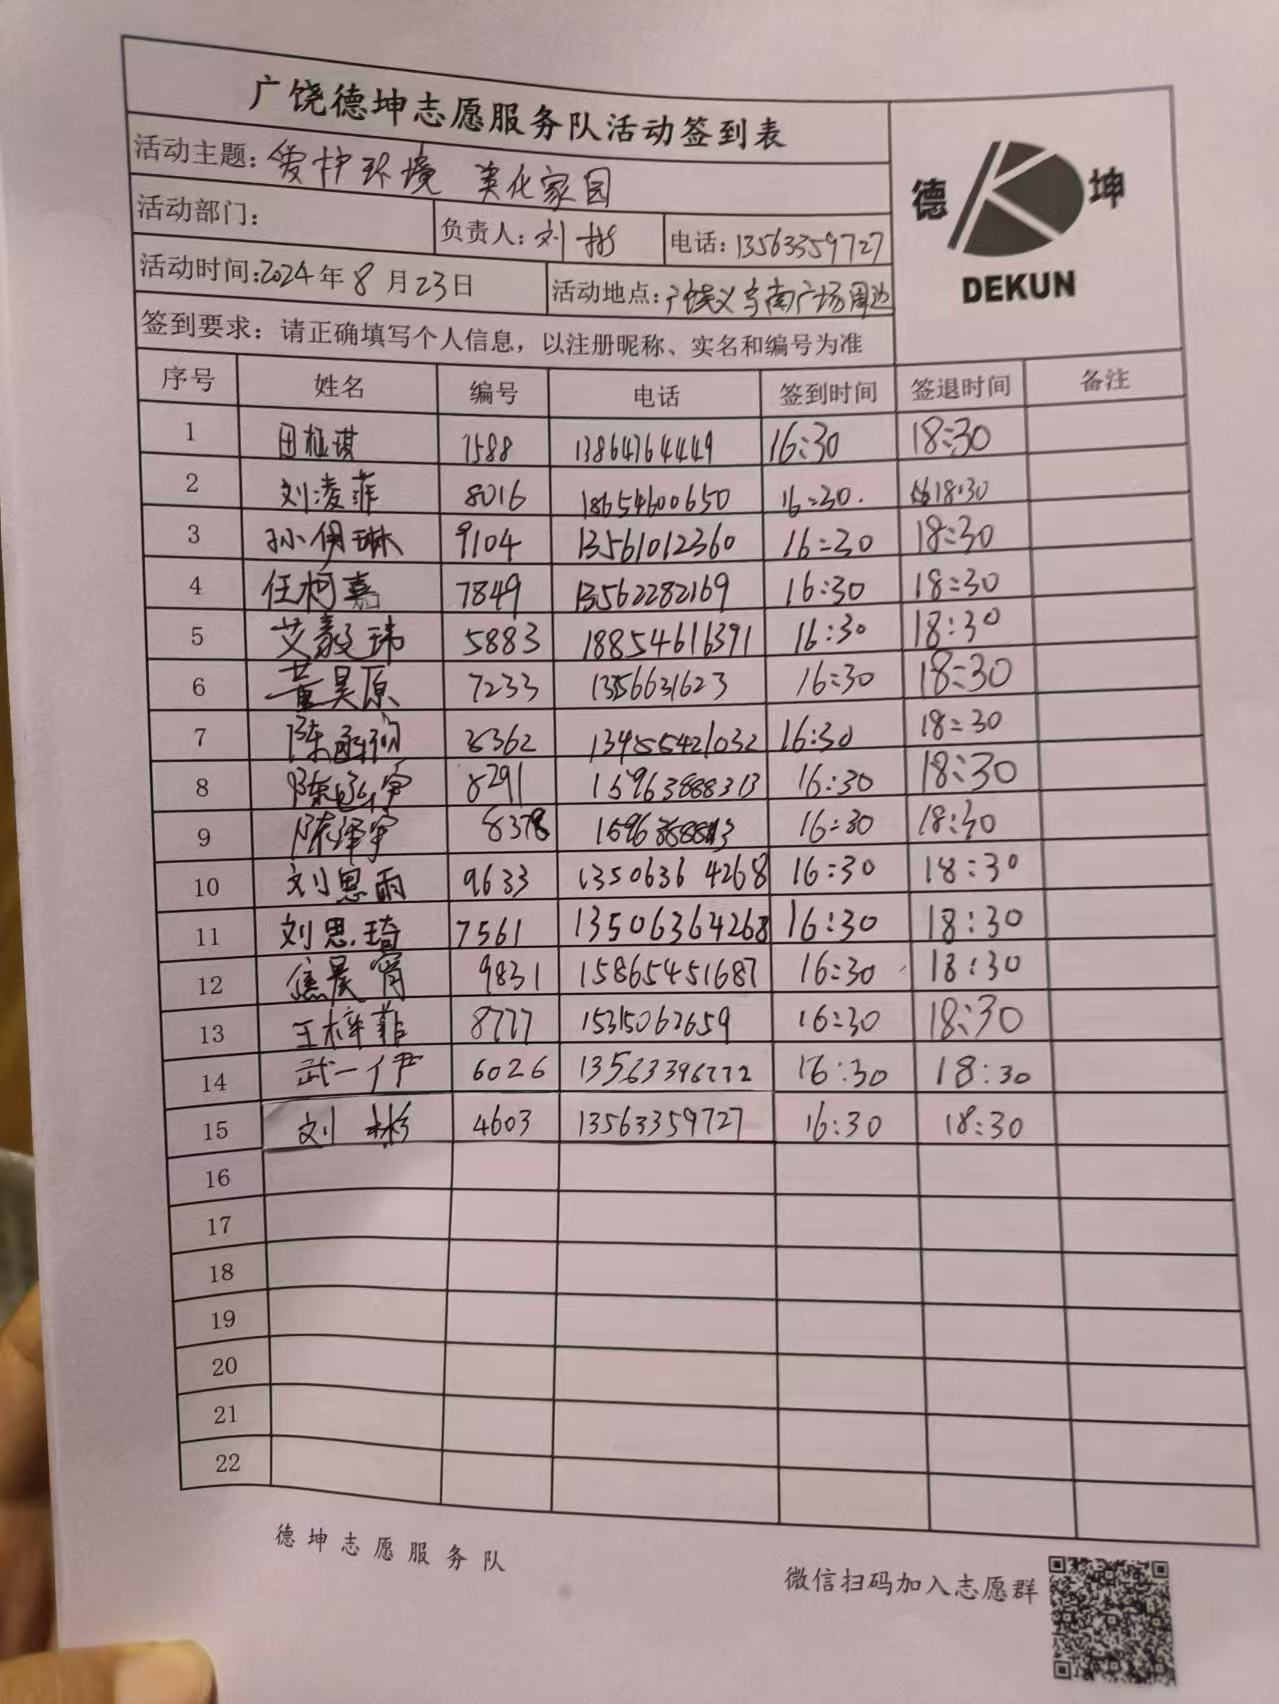 广饶德坤志愿服务队活动签到表
德 坤
DEKUN
活动主题：爱护环境 美化家园
活动部门：
负责人：刘彬 电话：13563359727
活动时间：2024年8月23日 活动地点：广饶义乌南广场周边
签到要求：请正确填写个人信息，以注册昵称、实名和编号为准
序号 姓名 编号 电话 签到时间 签退时间 备注
1 田桠琪 7588 13864764449 16:30 18:30
2 刘凌菲 8016 18654600650 16:30. 18:30
3 孙伊琳 9104 13561012360 16:30 18:30
4 任柯嘉 7849 13562282169 16:30 18:30
5 艾毅玮 5883 18854616391 16:30 18:30
6 董昊原 7233 1356631623 16:30 18:30
7 陈 8362 13455421032 16:30 18:30
8 陈 8291 15963888313 16:30 18:30
9 陈泽宇 8378 16:30 18:30
10 刘思雨 9633 13506364268 16:30 18:30
11 刘思琦 7561 13506364268 16:30 18:30
12 焦晨宵 9831 15865451687 16:30 18:30
13 王梓菲 8777 15315062659 16:30 18:30
14 武一伊 6026 13563396772 16:30 18:30
15 刘彬 4603 13563359727 16:30 18:30
16
17
18
19
20
21
22
德坤志愿服务队
微信扫码加入志愿群